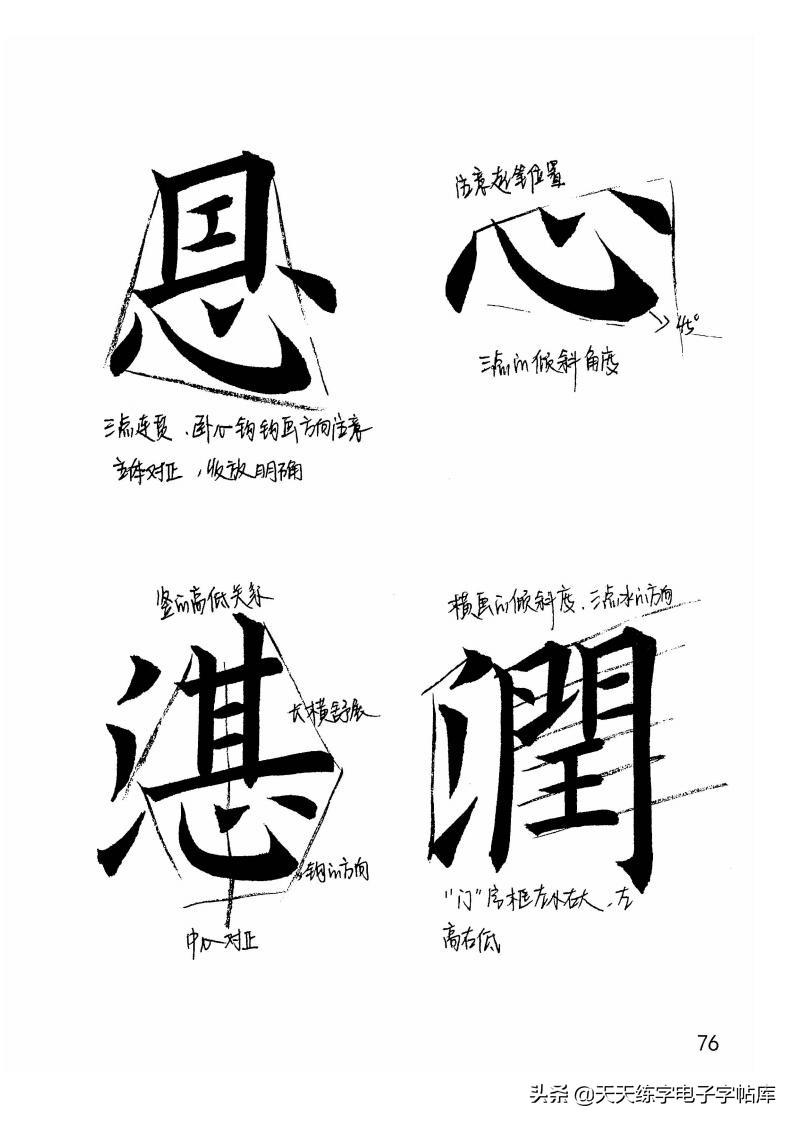 注意起笔位置
恩
心
45°
三点的倾斜角度
三点连贯、卧心钩钩画方向注意
主体对正，收放明确
竖的高低关系
湛
长横舒展
钩的方向
中心对正
横画的倾斜度、三点水的方向
潤
“门”字框左小右大、左
高右低
76
头条 @天天练字电子字帖库